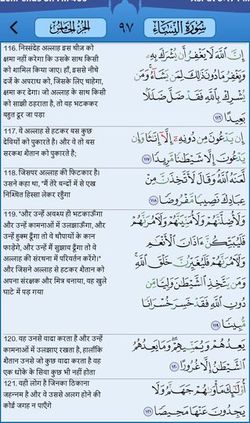 الجزء الخامس ٩٧ سورة النساء
116. निस्संदेह अल्लाह इस चीज़ को
क्षमा नहीं करेगा कि उसके साथ किसी
को शामिल किया जाए। हाँ, इससे नीचे
दर्जे के अपराध को, जिसके लिए चाहेगा,
क्षमा कर देगा। जो अल्लाह के साथ किसी
को साझी ठहराता है, तो वह भटककर
बहुत दूर जा पड़ा
إِنَّ ٱللَّهَ لَا يَغْفِرُ أَن يُشْرَكَ بِهِۦ
وَيَغْفِرُ مَا دُونَ ذَٰلِكَ لِمَن يَشَآءُ ۚ وَمَن
يُشْرِكْ بِٱللَّهِ فَقَدْ ضَلَّ ضَلَـٰلًۢا
بَعِيدًا ١١٦
117. वे अल्लाह से हटकर बस कुछ
देवियों को पुकारते है। और वे तो बस
सरकश शैतान को पुकारते है;
إِن يَدْعُونَ مِن دُونِهِۦٓ إِلَّآ إِنَـٰثًا وَإِن
يَدْعُونَ إِلَّا شَيْطَـٰنًا مَّرِيدًا ١١٧
118. जिसपर अल्लाह की फिटकार है।
उसने कहा था, "मैं तेरे बन्दों में से एख
निश्चित हिस्सा लेकर रहूँगा
لَّعَنَهُ ٱللَّهُ ۘ وَقَالَ لَأَتَّخِذَنَّ مِنْ
عِبَادِكَ نَصِيبًا مَّفْرُوضًا ١١٨
119. "और उन्हें अवश्य ही भटकाऊँगा
और उन्हें कामनाओं में उलझाऊँगा, और
उन्हें हुक्म दूँगा तो वे चौपायों के कान
फाड़ेगे, और उन्हें मैं सुझाव दूँगा तो वे
अल्लाह की संरचना में परिवर्तन करेंगे।"
और जिसने अल्लाह से हटकर शैतान को
अपना संरक्षक और मित्र बनाया, वह खुले
घाटे में पड़ गया
وَلَأُضِلَّنَّهُمْ وَلَأُمَنِّيَنَّهُمْ وَلَـَٔامُرَنَّهُمْ
فَلَيُبَتِّكُنَّ ءَاذَانَ ٱلْأَنْعَـٰمِ
وَلَـَٔامُرَنَّهُمْ فَلَيُغَيِّرُنَّ خَلْقَ ٱللَّهِ ۚ
وَمَن يَتَّخِذِ ٱلشَّيْطَـٰنَ وَلِيًّا مِّن
دُونِ ٱللَّهِ فَقَدْ خَسِرَ خُسْرَانًا
مُّبِينًا ١١٩
120. वह उनसे वादा करता है और उन्हें
कामनाओं में उलझाए रखता है, हालाँकि
शैतान उनसे जो कुछ वादा करता है वह
एक धोके के सिवा कुछ भी नहीं होता
يَعِدُهُمْ وَيُمَنِّيهِمْ ۖ وَمَا يَعِدُهُمُ
ٱلشَّيْطَـٰنُ إِلَّا غُرُورًا ١٢٠
121. वही लोग है जिनका ठिकाना
जहन्नम है और वे उससे अलग होने की
कोई जगह न पाएँगे
أُو۟لَـٰٓئِكَ مَأْوَىٰهُمْ جَهَنَّمُ وَلَا
يَجِدُونَ عَنْهَا مَحِيصًا ١٢١